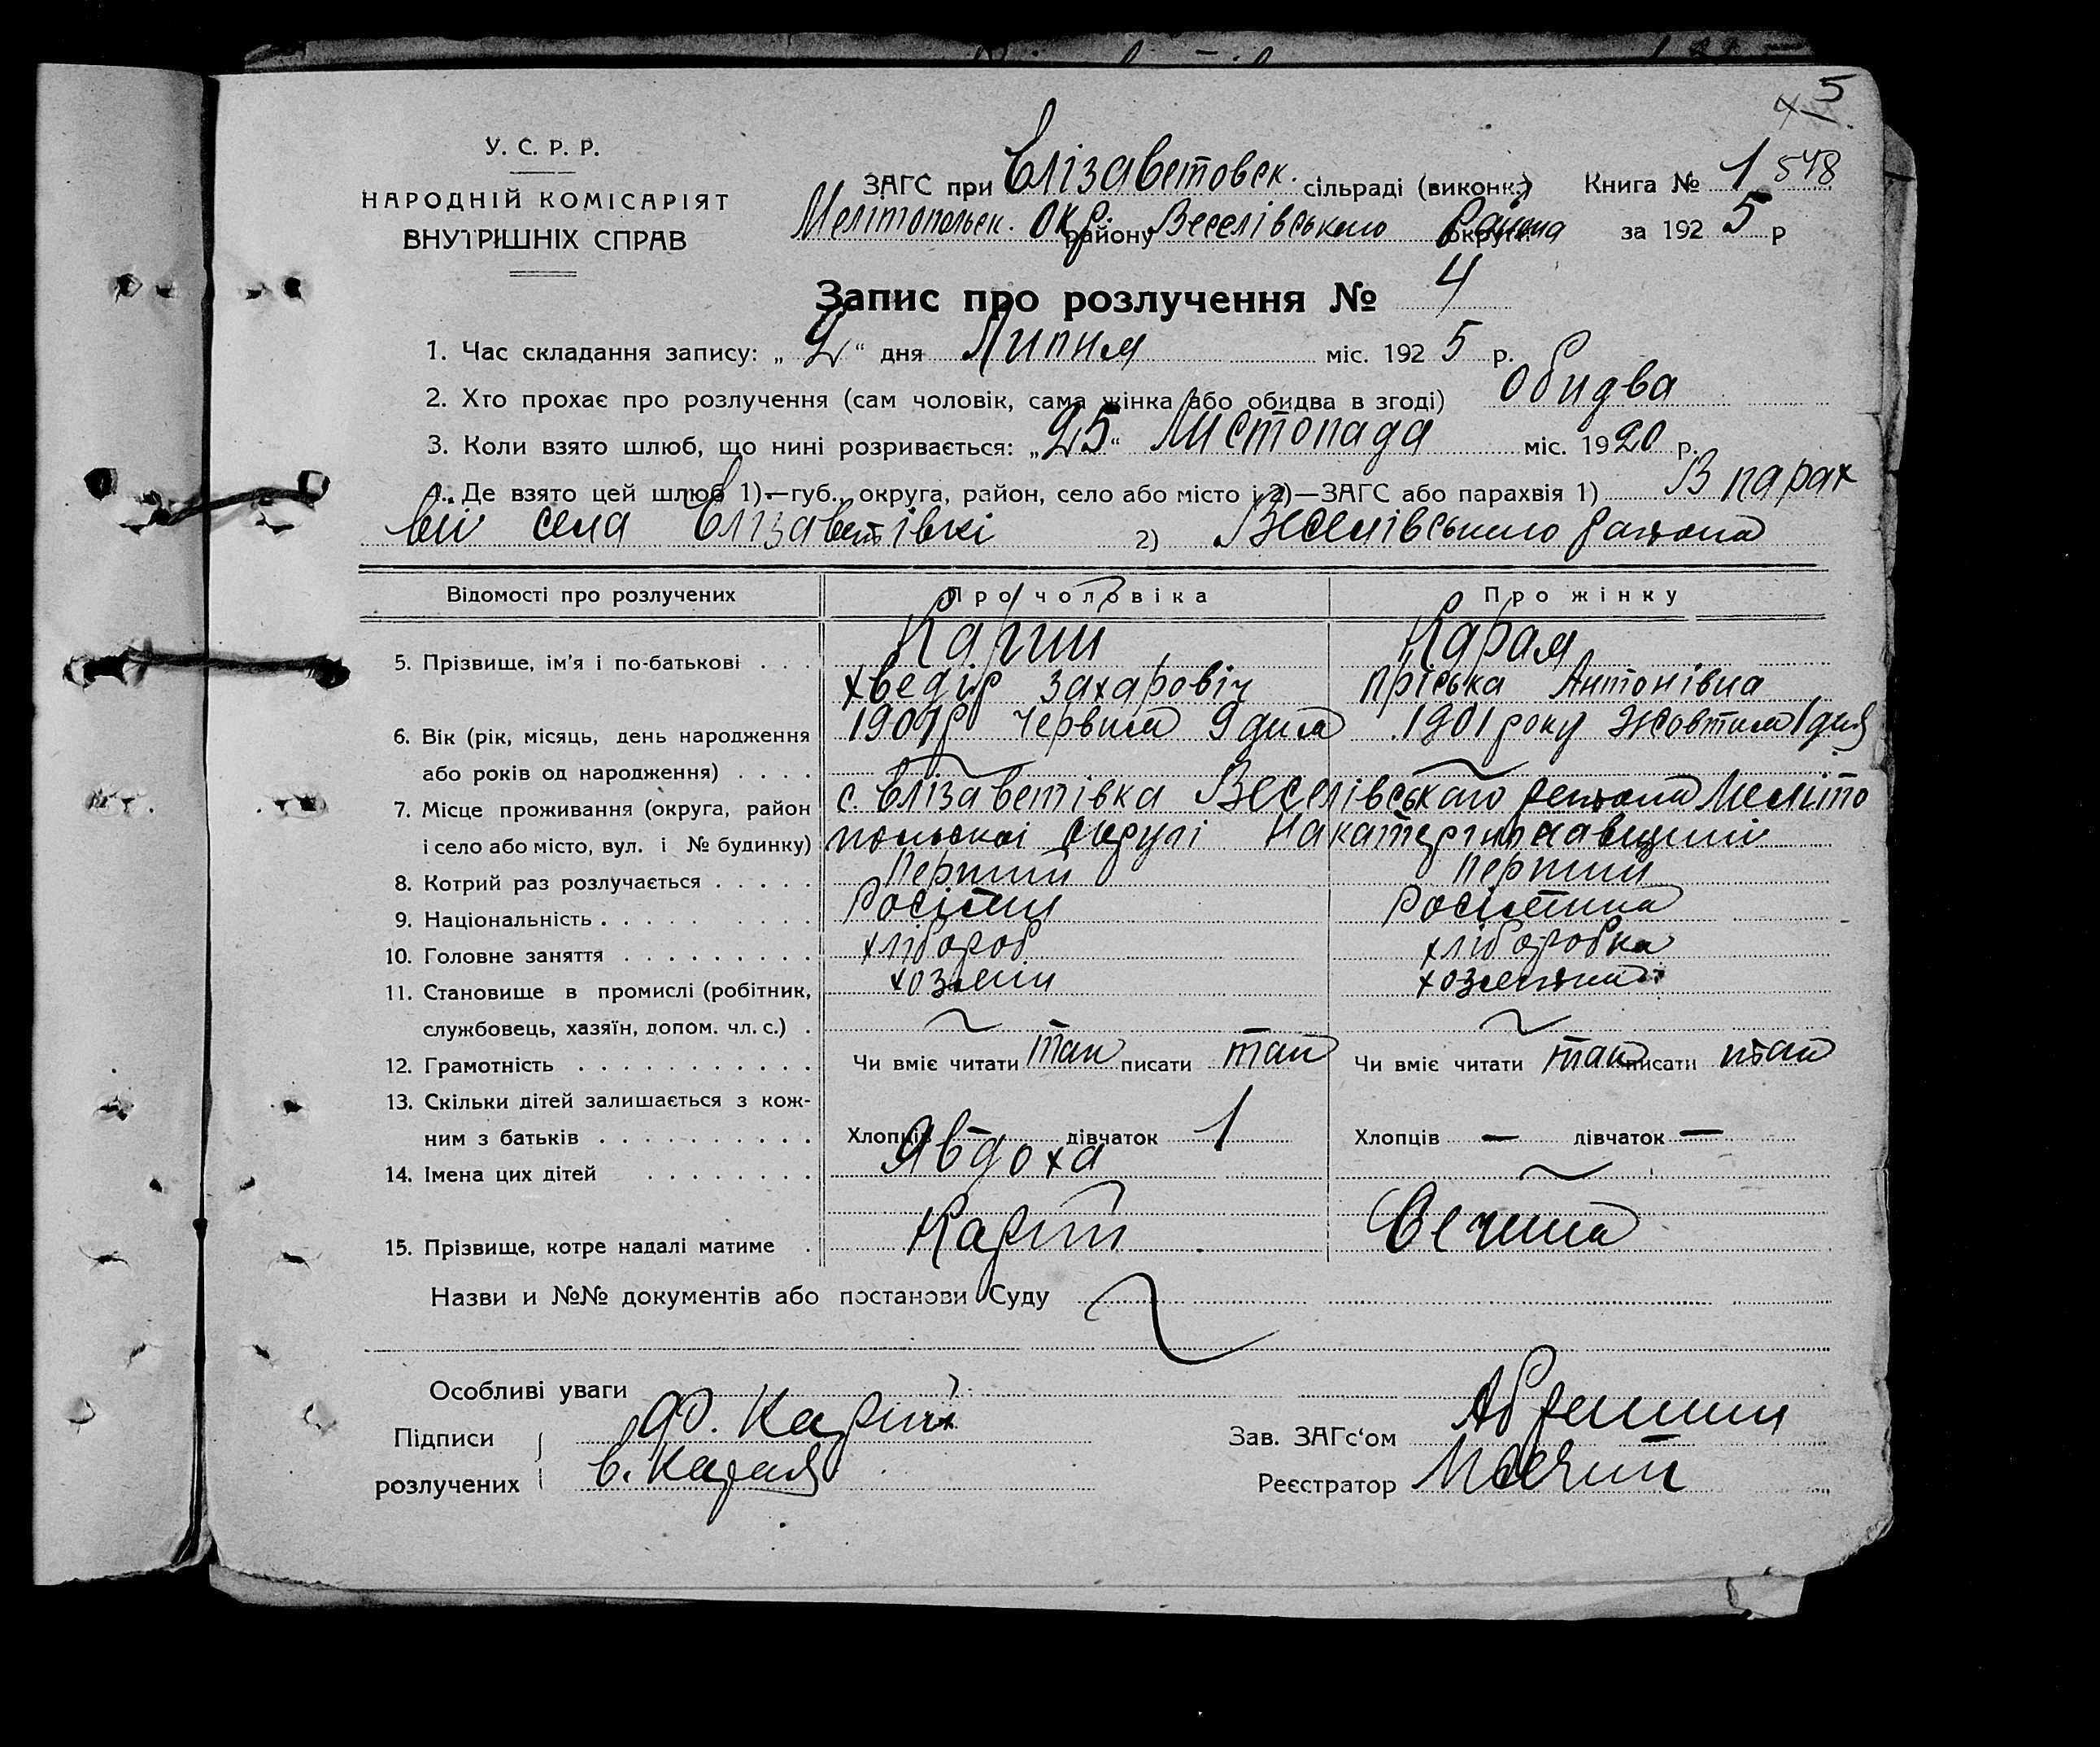 5
У. С. Р. Р.
НАРОДНІЙ КОМІСАРІЯТ
ВНУТРІШНІХ СПРАВ
ЗАГС при Єлізаветовск. сільраді (виконк.) Книга № 1 548
Мелітопольск. окр району Веселівського округи района за 1925 р
Запис про розлучення № 4
1. Час складання запису: „2“ дня Липня міс. 1925 р.
2. Хто прохає про розлучення (сам чоловік, сама жінка або обидва в згоді) обидва
3. Коли взято шлюб, що нині розривається: „25“ Листопада міс. 1920 р.
4. Де взято цей шлюб 1)—губ., округа, район, село або місто і 2)—ЗАГС або парахвія 1) В парах
вії села Єлізаветівкі 2) Веселівського района
Відомості про розлучених Про чоловіка Про жінку
5. Прізвище, ім'я і по-батькові Карий Карая
Хведір Захаровіч Пріська Антонівна
6. Вік (рік, місяць, день народження 1901р червня 9 дня 1901 року Жовтня 1 дня
або років од народження)
7. Місце проживання (округа, район с. Єлізаветівка Веселівського района Меліто
і село або місто, вул. і № будинку) польскої округі
8. Котрий раз розлучається Перший Перший
9. Національність
10. Головне заняття хлібороб хліборобка
11. Становище в промислі (робітник, хозяїн хозяйка
службовець, хазяїн, допом. чл. с.)
12. Грамотність Чи вміє читати так писати так Чи вміє читати так писати так
13. Скільки дітей залишається з кож-
ним з батьків Хлопців — дівчаток 1 Хлопців — дівчаток —
14. Імена цих дітей Явдоха
15. Прізвище, котре надалі матиме Карий
Назви и №№ документів або постанови Суду
Особливі уваги
Підписи Ф. Карий Зав. ЗАГс‘ом
розлучених В. Карая Реєстратор